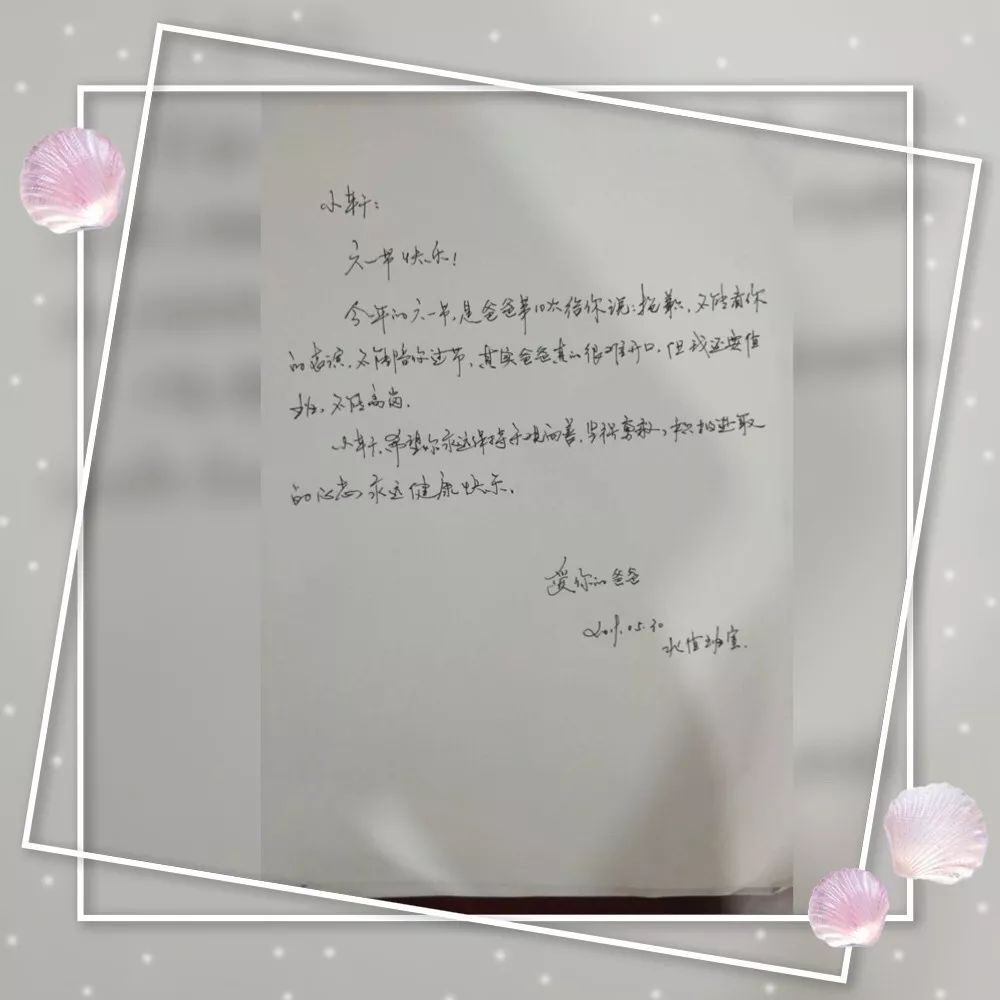 小轩：
六一节快乐！
今年的六一节，是爸爸第10次给你说：抱歉，不能看你
的表演，不能陪你过节，其实爸爸真的很难开口，但我还要值
班，不能离岗。
小轩，希望你永远保持乐观而善，坚强勇敢，积极进取
的心态，永远健康快乐。
爱你的爸爸
2019.05.30
值班室.